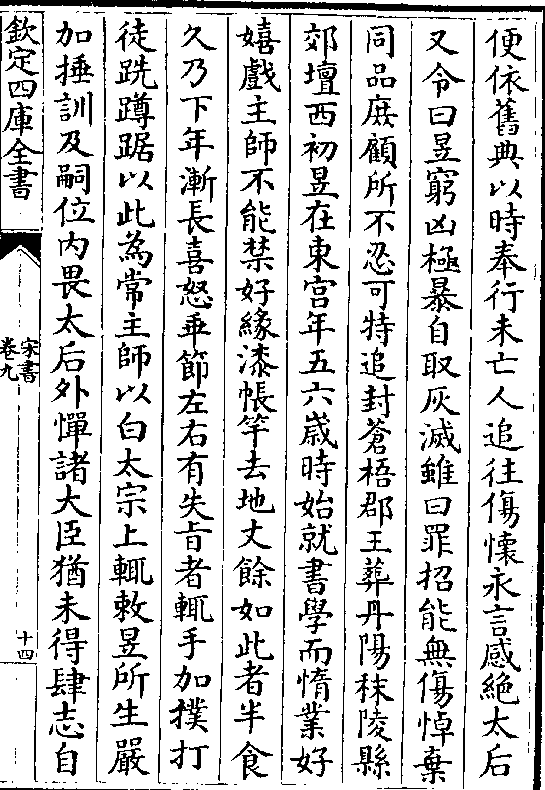 便依舊典以時奉行未亡人追往傷懷永言感絶太后
又令曰昱窮凶極暴自取灰滅雖曰罪招能無傷悼棄
同品庶顧所不忍可特追封蒼梧郡王葬丹陽秣陵縣
郊壇西初昱在東宮年五六歲時始就書學而惰業好
嬉戲主師不能禁好緣漆帳竿去地丈餘如此者半食
久乃下年漸長喜怒乖節左右有失㫖者輒手加撲打
徒跣蹲踞以此為常主師以白太宗上輒敕昱所生嚴
加捶訓及嗣位内畏太后外憚諸大臣猶未得肆志自
欽定四庫全書
宋書
卷九
十四